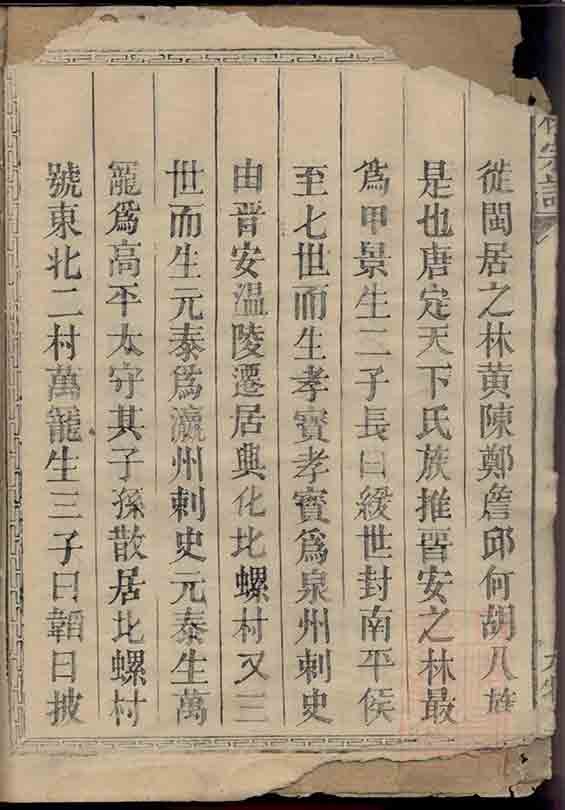 宗譜
徙閩居之林黃陳鄭詹邱何胡八族
是也唐定天下氏族推晋安之林最
爲甲景生二子長曰緩世封南平侯
至七世而生孝寳孝寳爲泉州刺史
由晋安温陵遷居興化北螺村又三
世而生元泰爲瀛州刺史元泰生萬
寵爲高平太守其子孫散居北螺村
號東北二村萬寵生三子曰韜曰披